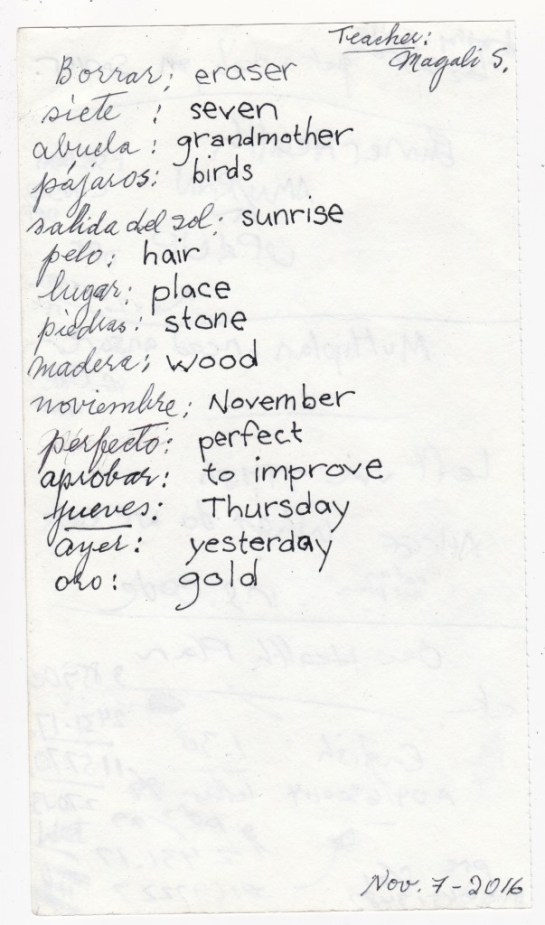 Teacher:
Magali S.
Borrar; eraser
siete : seven
abuela : grandmother
pájaros: birds
salida del sol; sunrise
pelo; hair
lugar: place
piedras: stone
madera; wood
noviembre; November
perfecto: perfect
aprobar: to improve
jueves: Thursday
ayer: yesterday
oro: gold
Nov. 7-2016